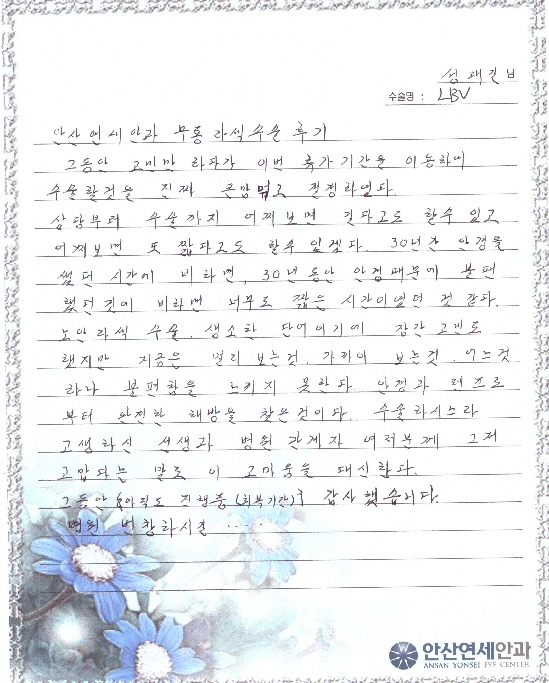 성 재 진 님
수술명 : LBV
안산 연세안과 무통 라식수술 후기
그동안 고민만 하다가 이번 휴가기간을 이용하여
수술할것을 진짜 큰맘먹고 결정하였다
상담부터 수술까지 어찌보면 길다고도 할수 있고
어찌보면 또 짧다고도 할수 있겠다. 30년간 안경을
썼던 시간에 비하면, 30년 동안 안경때문에 불편
했던것에 비하면 너무도 짧은 시간이었던 것 같다.
노안라식 수술. 생소한 단어이기에 잠깐 고민도
했지만 지금은 멀리 보는것, 가까이 보는것. 어느것
하나 불편함을 느끼지 못한다. 안경과 렌즈로
부터 완전한 해방을 찾은것이다. 수술하시느라
고생하신 선생과 병원 관계자 여러분께 그저
고맙다는 말로 이 고마움을 대신한다.
그동안 (아직도 진행중 (회복기간)) 감사했습니다.
병원 번창하시길 ....
안산연세안과
ANSAN YONSEI EYE CENTER